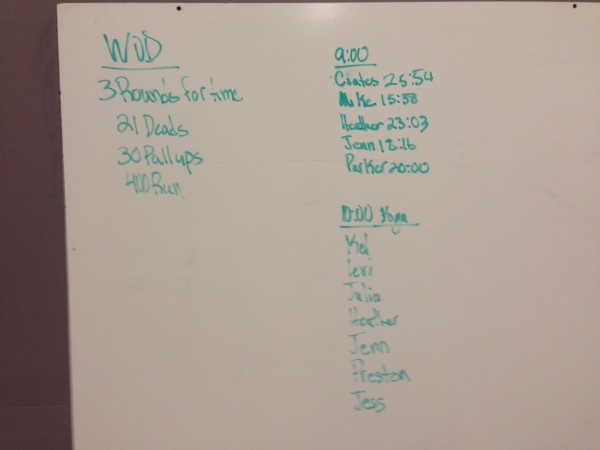 WOD
3 Rounds for time
21 Deads
30 Pullups
400 Run
9:00
Coates 25:54
Mike 15:38
Heather 23:03
Jenn 18:16
Parker 20:00
10:00 Yoga
Kel
levi
Julia
Heather
Jenn
Preston
Jess